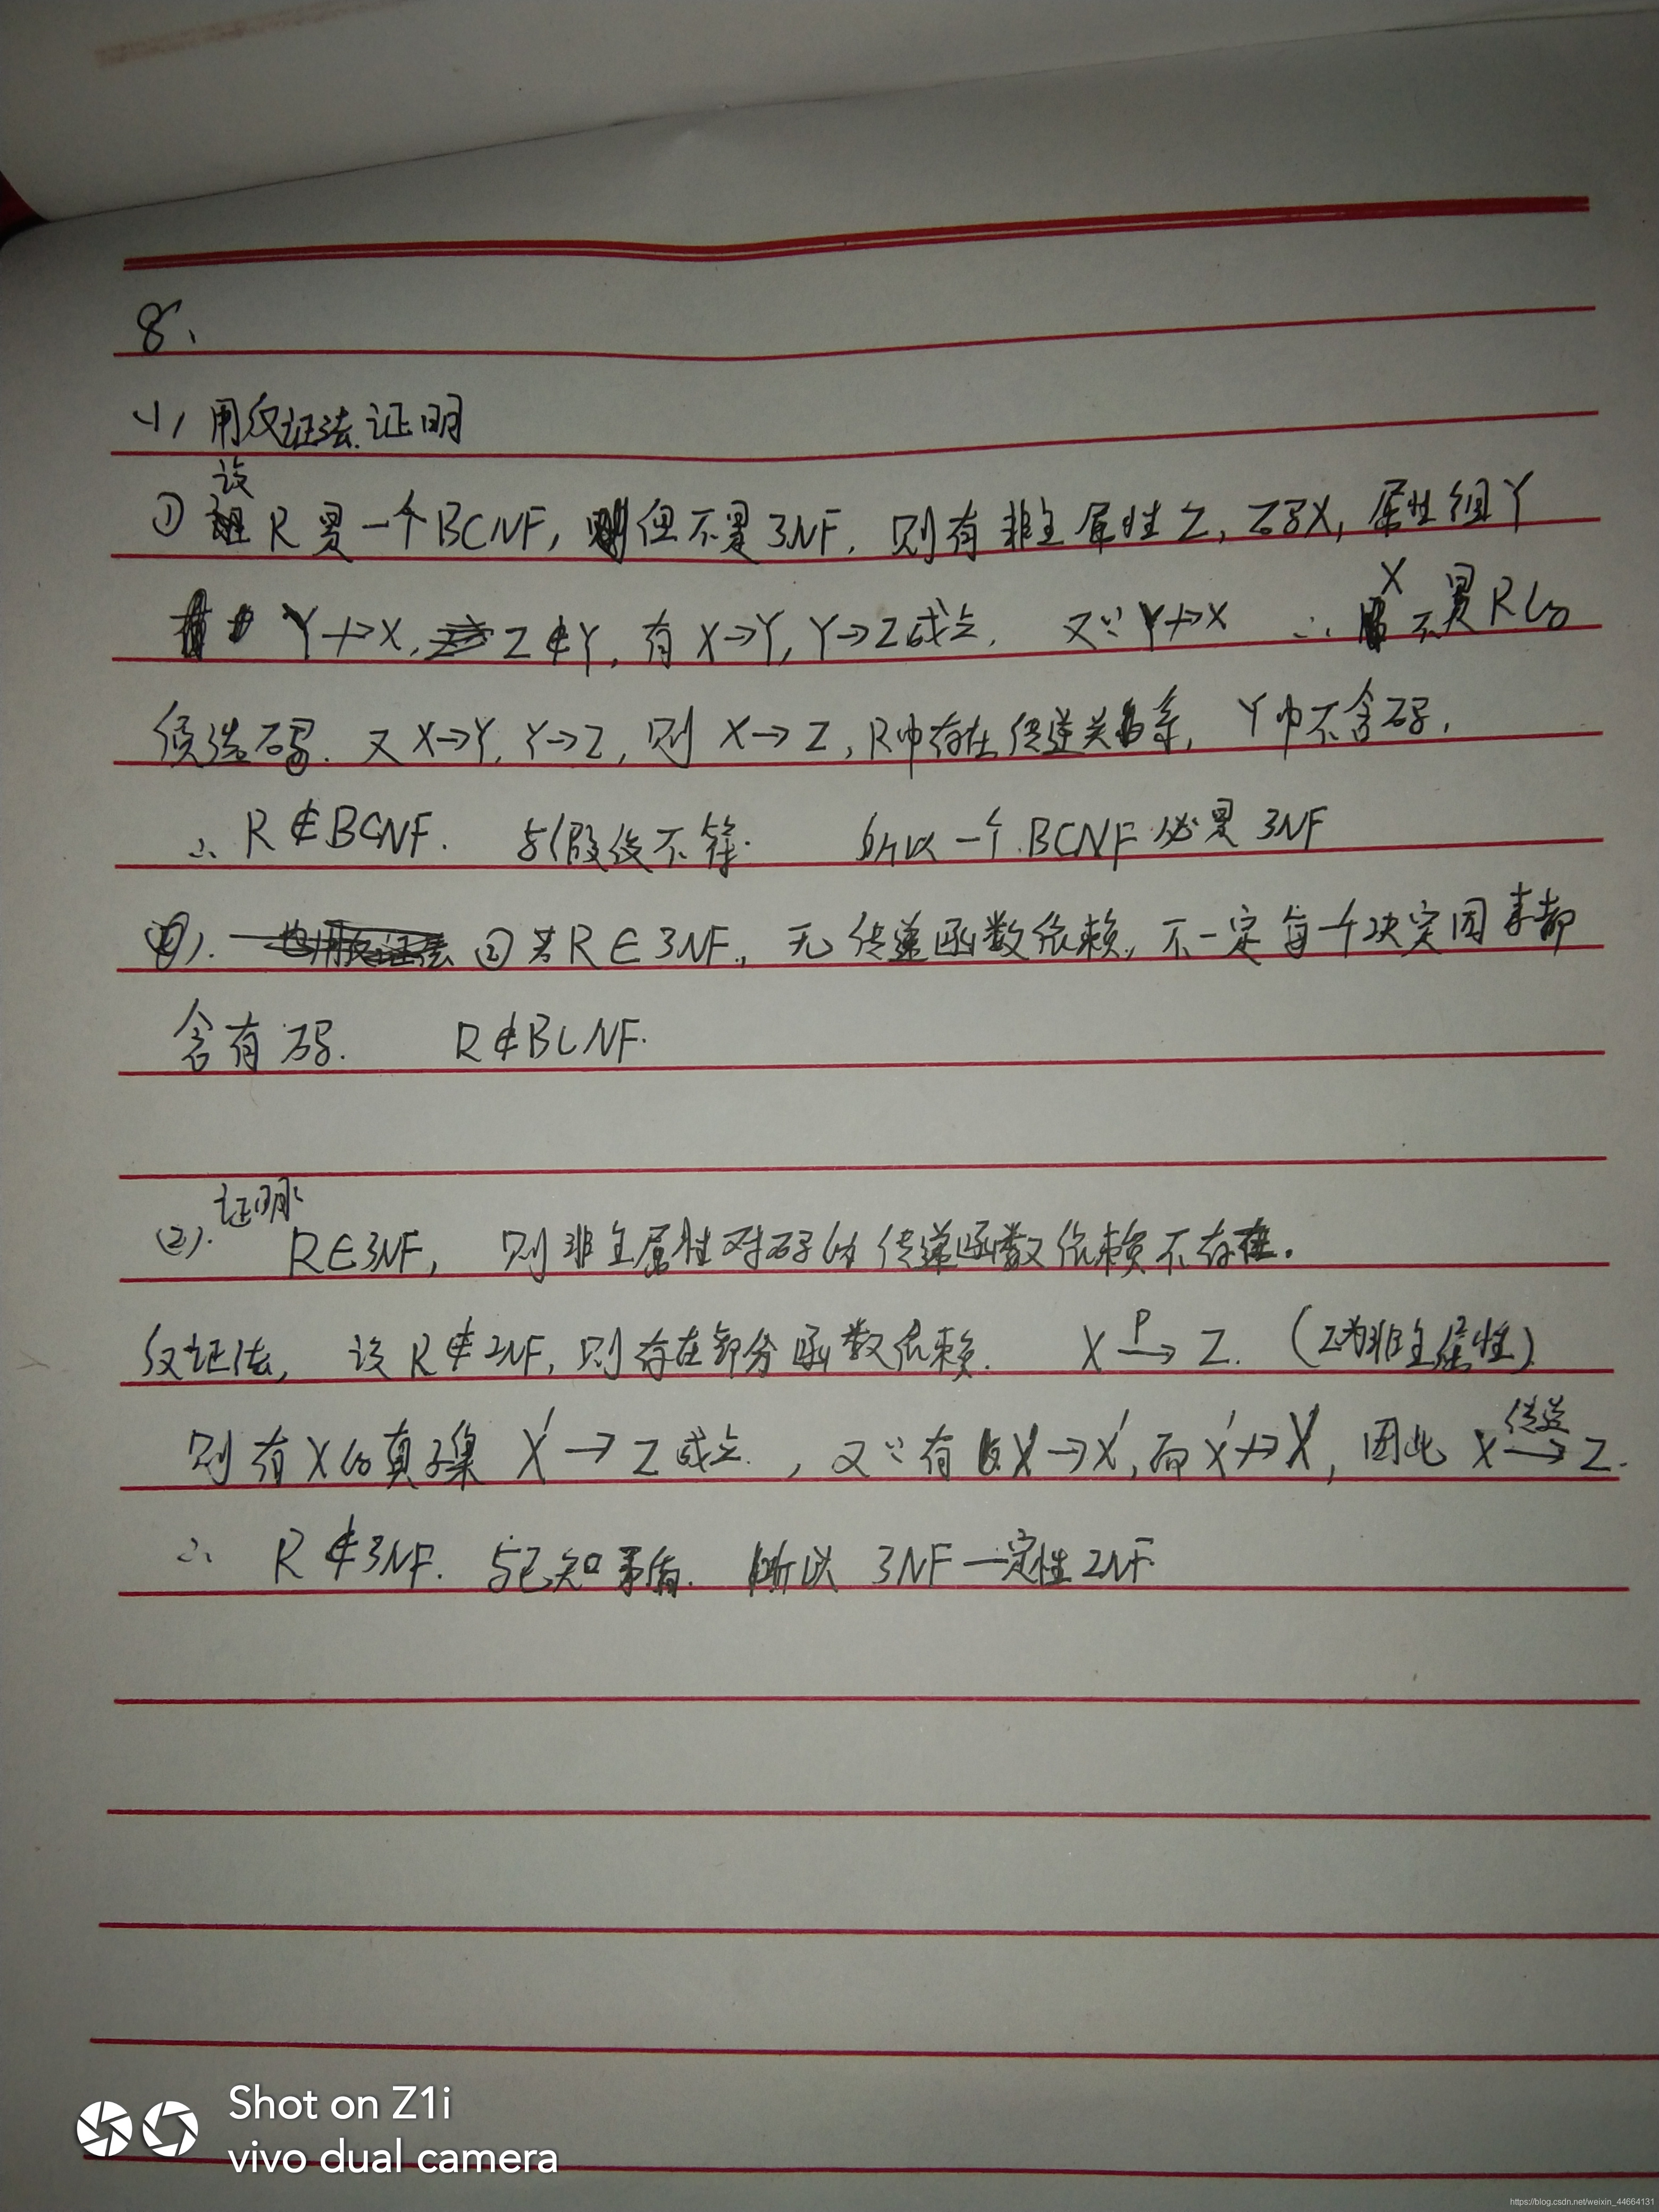 8、
(1) 用反证法证明
设
① R是一个BCNF, 但不是3NF, 则有非主属性Z, 码X, 属性组Y
Y↛X, Z∉Y, 有X→Y, Y→Z成立, 又∵Y↛X ∴ X不是R的
候选码. 又X→Y, Y→Z, 则 X→Z, R中存在传递关系, Y中不含码,
∴ R∉BCNF. 与假设不符. 所以一个BCNF必是3NF
② 若R∈3NF, 无传递函数依赖, 不一定每一个决定因素都
含有码. R∉BCNF.
(2). 证明
R∈3NF, 则非主属性对码的传递函数依赖不存在.
反证法, 设R∉2NF, 则存在部分函数依赖. X P→ Z. (Z为非主属性)
则有X的真子集 X'→Z成立, 又∵有X→X', 而X'↛X, 因此 X 传递→ Z.
∴ R∉3NF. 与已知矛盾. 所以 3NF一定性2NF
Shot on Z1i
vivo dual camera
https://blog.csdn.net/weixin_44664131